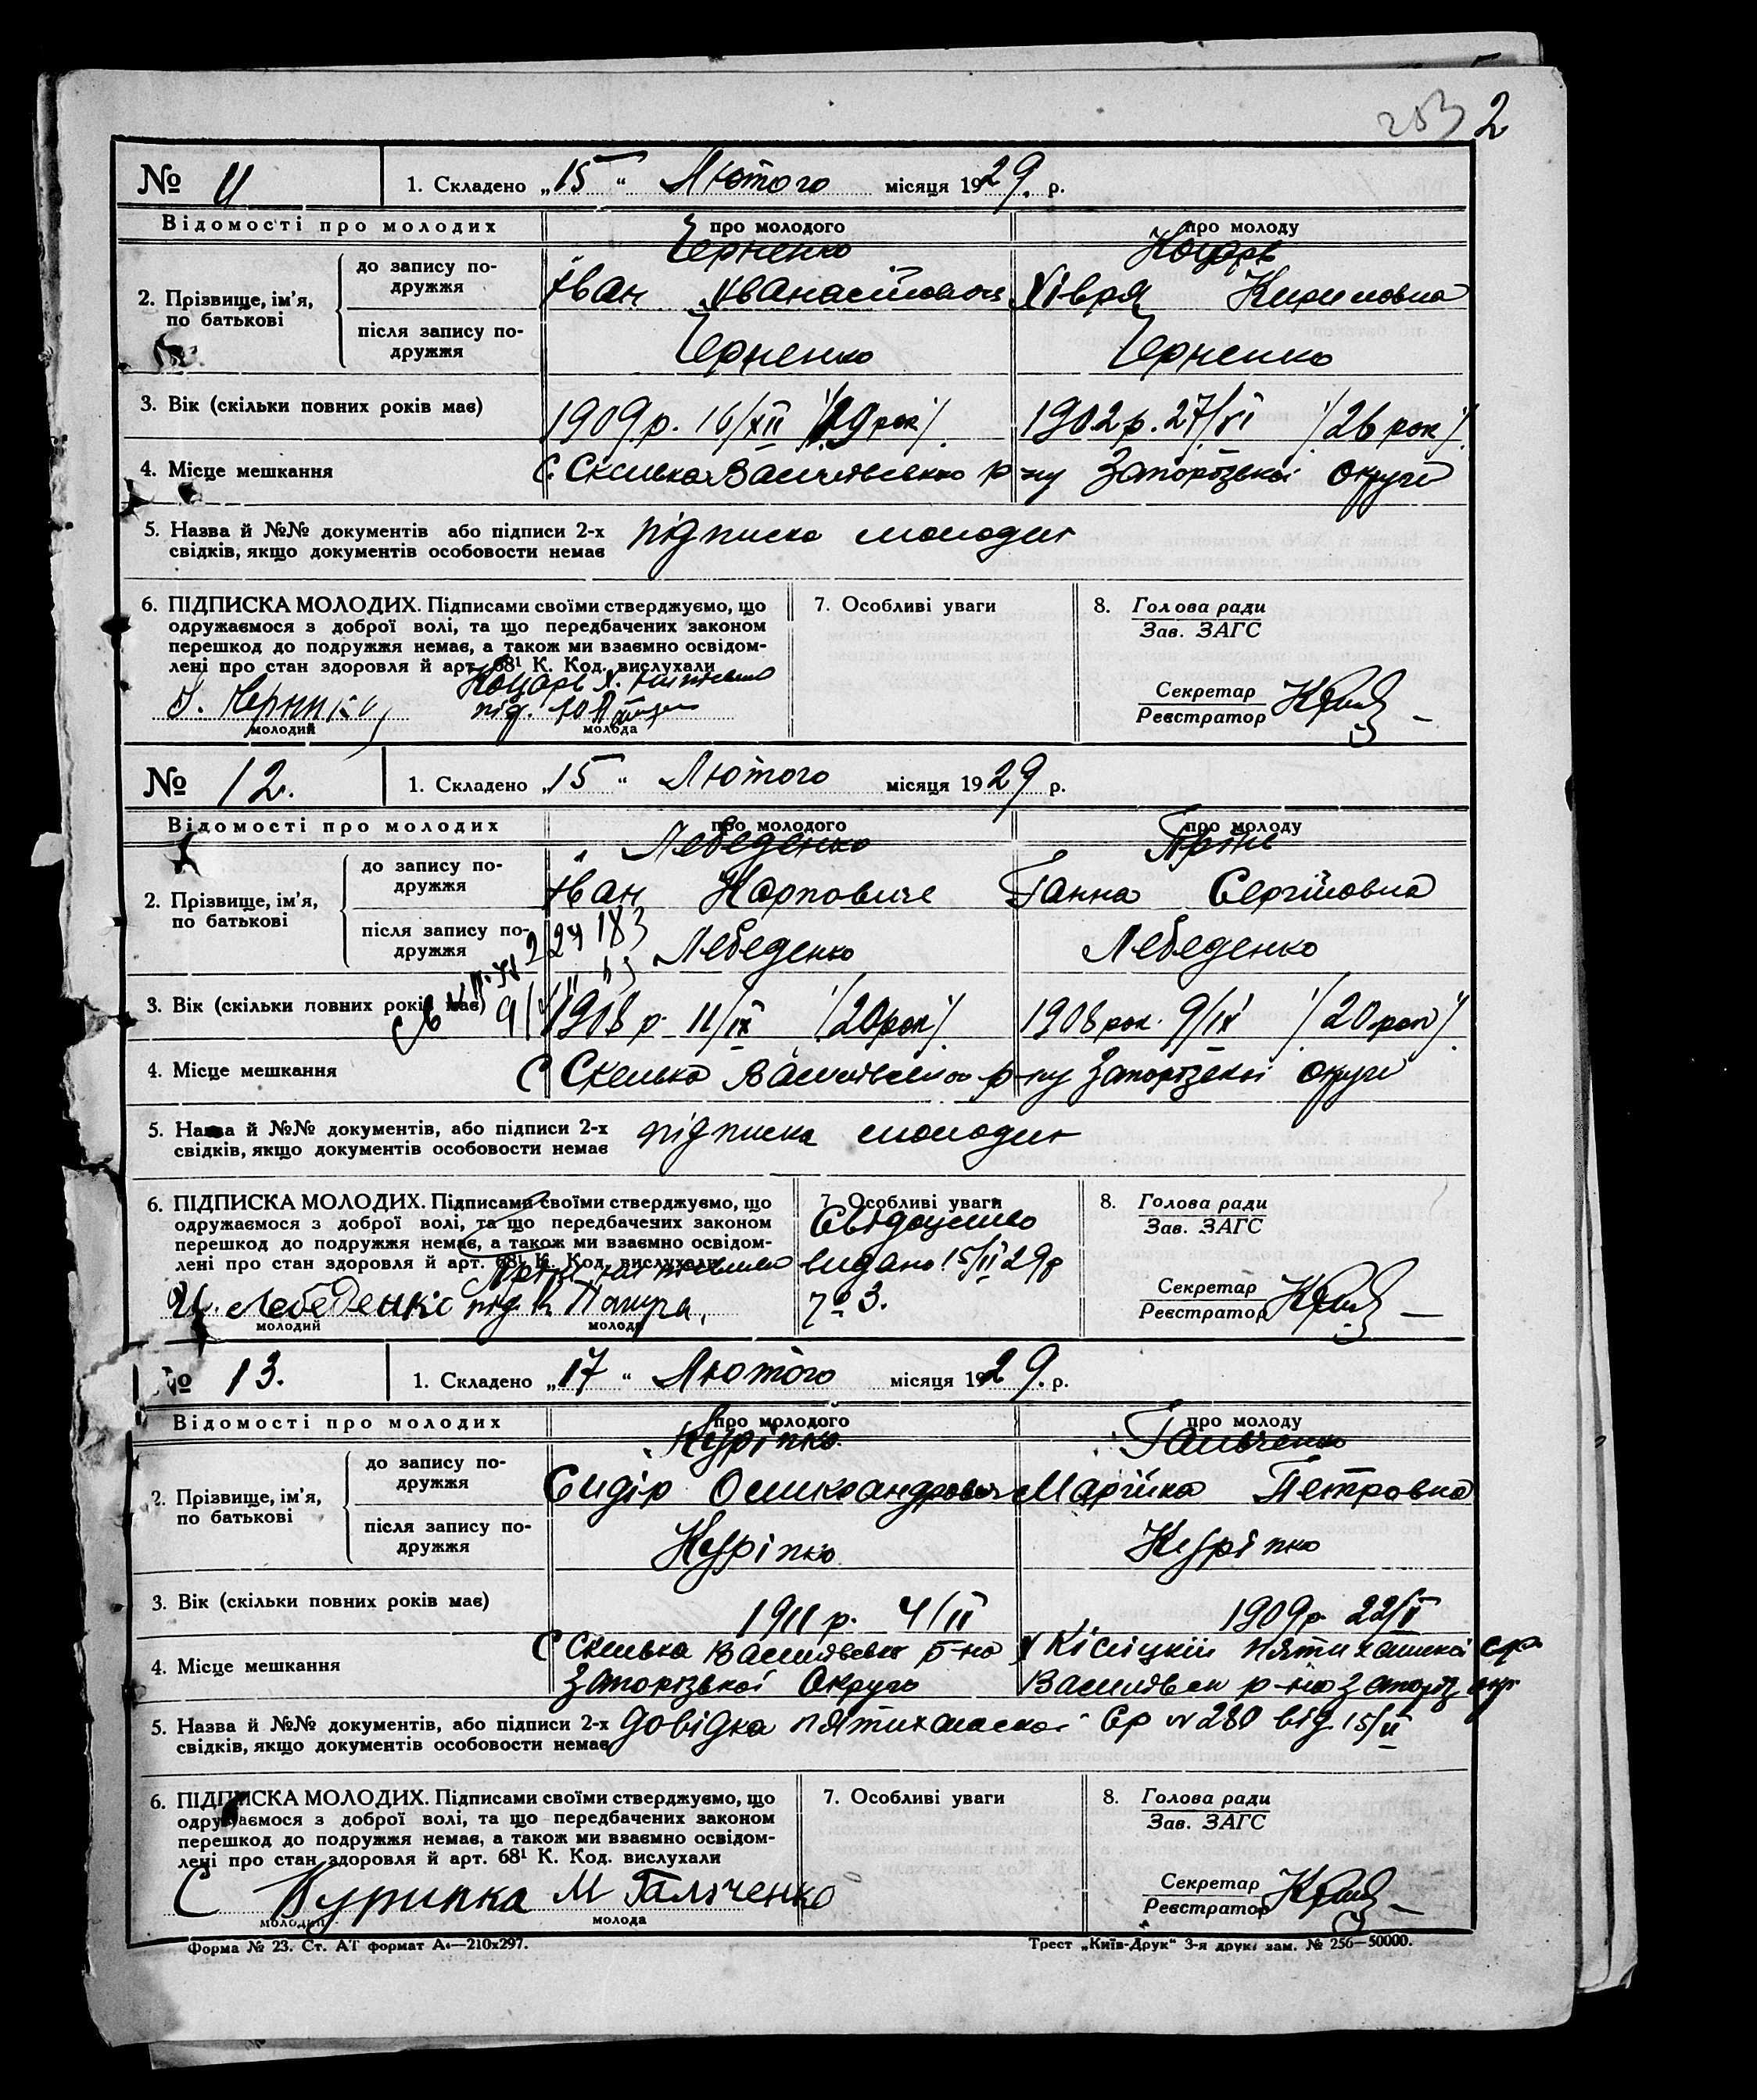 253 2
№ 11 1. Складено „15“ Лютого місяця 1929. р.
Відомості про молодих про молодого про молоду
Черненко Коцарь
2. Прізвище, ім'я, по батькові
до запису по-
дружжя
Іван Хівря Кириловна
після запису по-
дружжя
Черненко Черненко
3. Вік (скільки повних років має) 1909 р. 16/XII /19 рок/. 1902 р. 27/VI /26 рок/.
4. Місце мешкання С. Скелька Василівсько р-ну Запорізської Округи
5. Назва й №№ документів або підписи 2-х підписка молодих
свідків, якщо документів особовости немає
6. ПІДПИСКА МОЛОДИХ. Підписами своїми стверджуємо, що 7. Особливі уваги 8. Голова ради
одружаємося з доброї волі, та що передбачених законом Зав. ЗАГС
перешкод до подружжя немає, а також ми взаємно освідом-
лені про стан здоровля й арт. 68¹ К. Код. вислухали
Коцарь Х.
під. Секретар
молодий молода Реєстратор
№ 12. 1. Складено „15“ Лютого місяця 1929 р.
Відомості про молодих про молодого про молоду
Лебеденко
2. Прізвище, ім'я, по батькові
до запису по-
дружжя
Іван Карпович Ганна Сергіївна
після запису по-
дружжя
Лебеденко Лебеденко
3. Вік (скільки повних років має) 1908 р. 11/IX /20 рок/. 1908 рок. 9/IX /20 рок/.
4. Місце мешкання С Скелька Василівсько р-ну Запорізської Округи
5. Назва й №№ документів, або підписи 2-х підписка молодих
свідків, якщо документів особовости немає
6. ПІДПИСКА МОЛОДИХ. Підписами своїми стверджуємо, що 7. Особливі уваги 8. Голова ради
одружаємося з доброї волі, та що передбачених законом Зав. ЗАГС
перешкод до подружжя немає, а також ми взаємно освідом-
лені про стан здоровля й арт. 68¹ К. Код. вислухали
видано 15/II 29р
И. Лебеденко під. 3. Секретар
молодий молода Реєстратор
№ 13. 1. Складено „17“ Лютого місяця 1929. р.
Відомості про молодих про молодого про молоду
Куріпко Гальченко
2. Прізвище, ім'я, по батькові
до запису по-
дружжя
Сидір Марійка Петровна
після запису по-
дружжя
Куріпко Куріпко
3. Вік (скільки повних років має) 1911 р. 4/II 1909 р. 22/
4. Місце мешкання С Скелька Василівськ р-но
Запорізської Округи р-но
5. Назва й №№ документів, або підписи 2-х довідка Ср № 280 від 15/II
свідків, якщо документів особовости немає
6. ПІДПИСКА МОЛОДИХ. Підписами своїми стверджуємо, що 7. Особливі уваги 8. Голова ради
одружаємося з доброї волі, та що передбачених законом Зав. ЗАГС
перешкод до подружжя немає, а також ми взаємно освідом-
лені про стан здоровля й арт. 68¹ К. Код. вислухали
С Курипка М Гальченко Секретар
молодий молода Реєстратор
Форма № 23. Ст. АТ формат А₄—210х297. Трест „Київ-Друк“ 3-я друк. зам. № 256—50000.